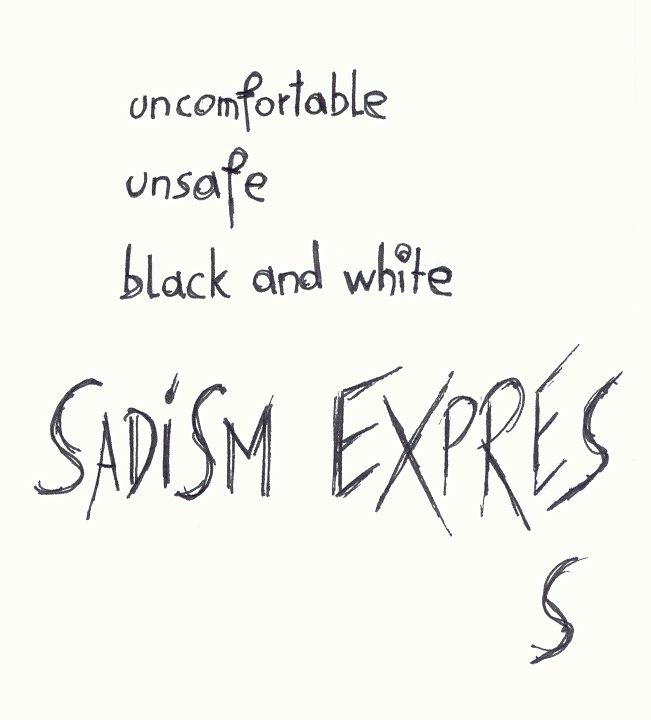 uncomfortable
unsafe
black and white
SADiSM EXPRES
S